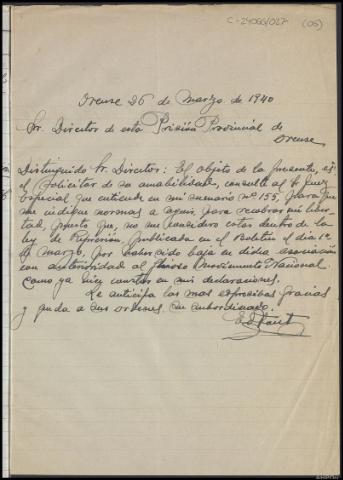 C-24066/027 (05)
Orense 26 de Marzo de 1940
Sr. Director de esta Prisión Provincial de
Orense
Distinguido Sr. Director: El objeto de la presente, es
el solicitar de su amabilidad, consulte al Sr Juez
Especial que entiende en mi sumario nº 155, para que
me indique normas a seguir, para recobrar mi liber-
tad, puesto que, no me considero estar dentro de la
ley de Represión, publicada en el Boletin el dia 1º
de marzo, por haberme dado baja en dicha asociación
con anterioridad al Movimiento Nacional
como ya hice constar en mis declaraciones.
Le anticipa las mas expresivas gracias
y queda a sus ordenes su subordinado.